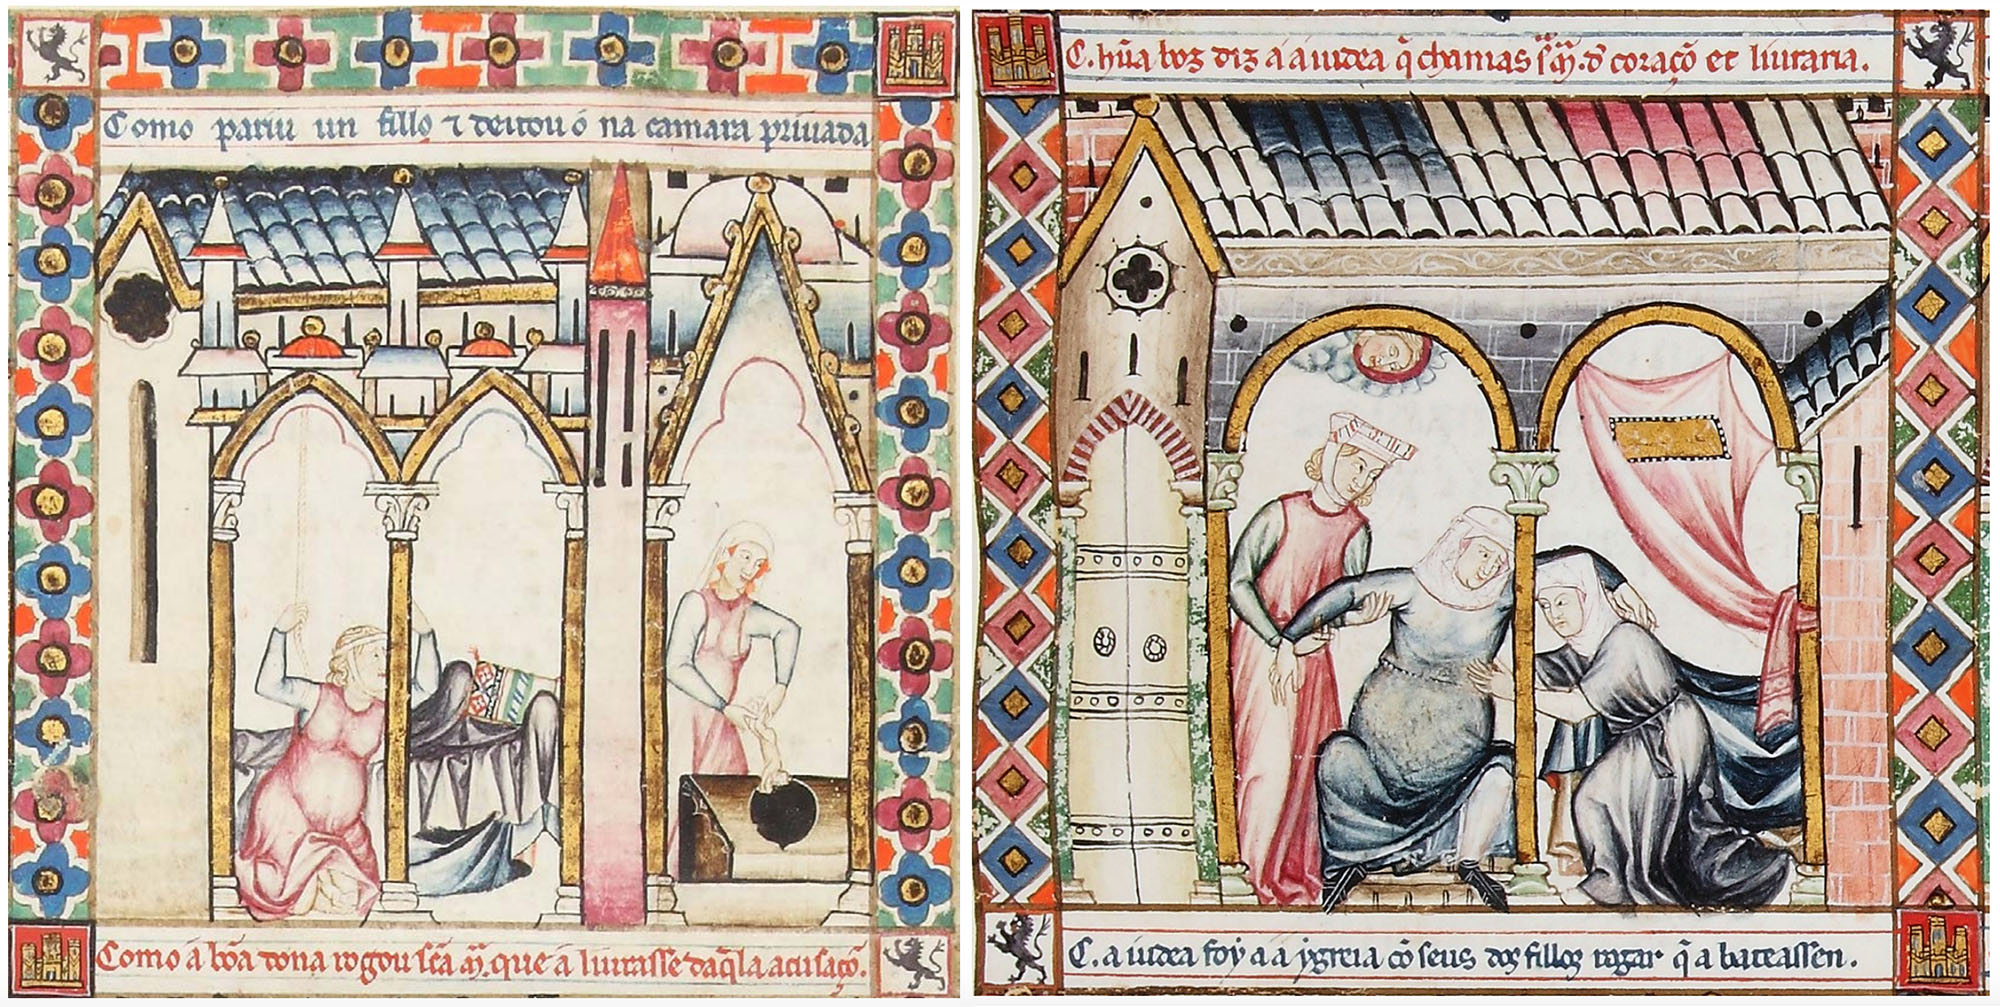 Como pariu un fillo ⁊ deitou ó na camara priuada
Como á bõa dona rogou scã m̃. que á liurasse daq̃la acusaçõ.
C. hũa boz diz á á iudea q̃ chamas sc̃a m̃. d̃ coraçõ et liuraria.
C. a iudea foy a a ygreia cõ seus dos fillos rogar q̃ a bateassen.